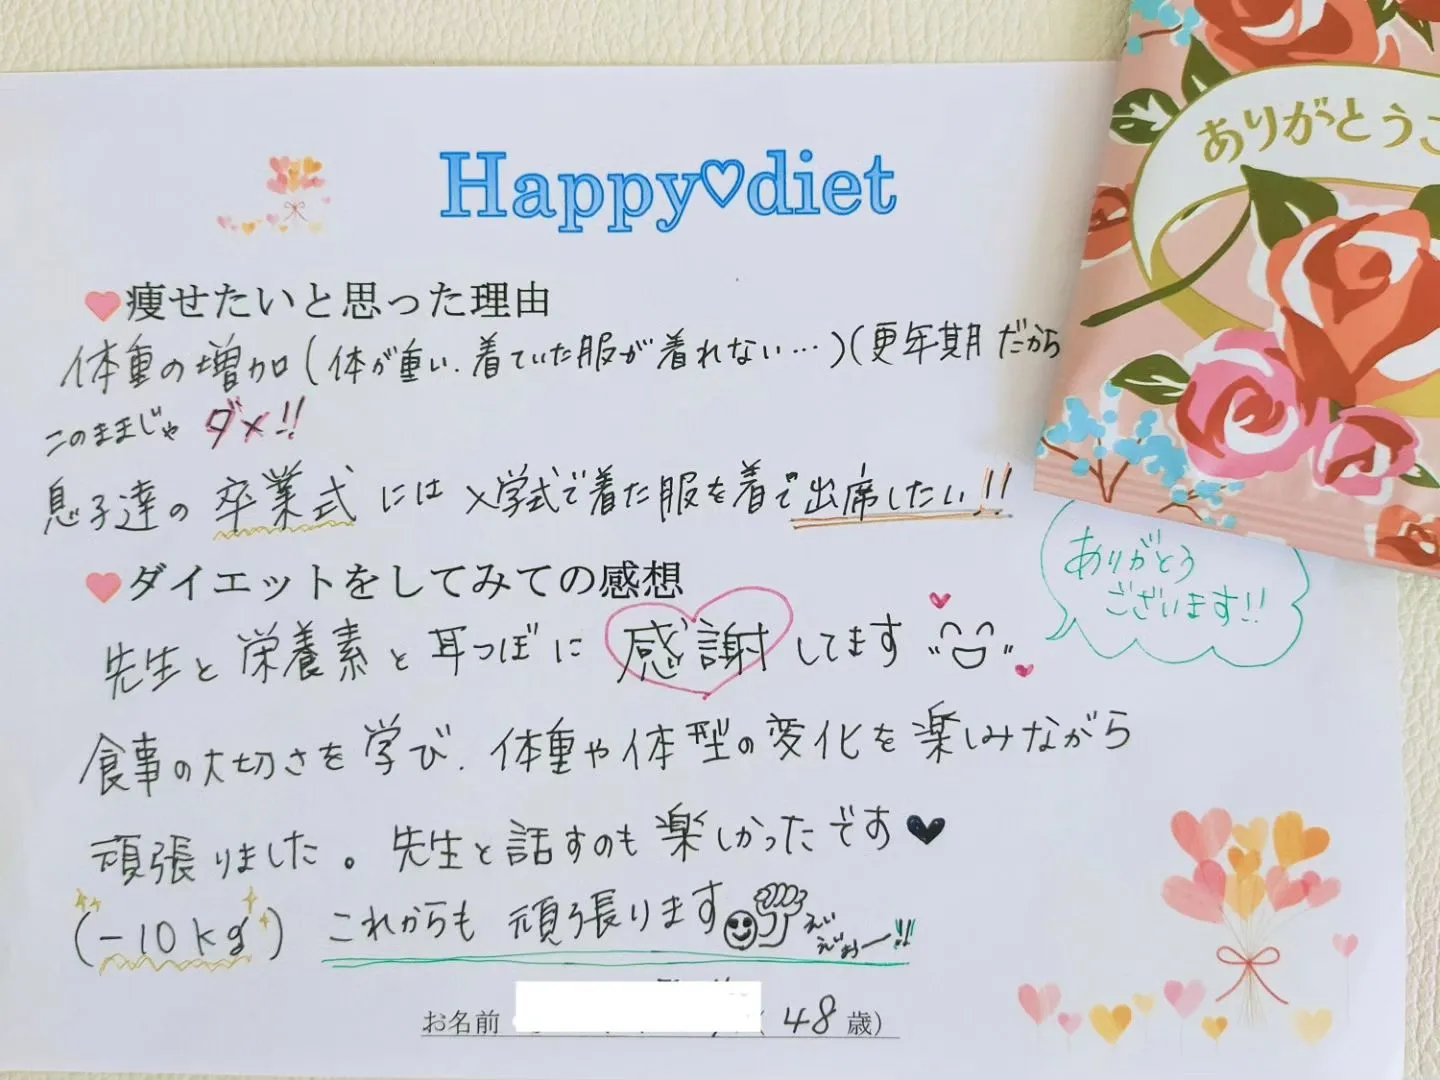 Happy♡diet
ありがとうご
痩せたいと思った理由
体重の増加(体が重い.着ていた服が着れない…)(更年期だから
このままじゃ ダメ!!
息子達の 卒業式 には 入学式で着た服を着て出席したい!!
ダイエットをしてみての感想
ありがとう
ございます!!
先生と栄養素と耳つぼに 感謝 してます
食事の大切さを学び.体重や体型の変化を楽しみながら
頑張りました。先生と話すのも楽しかったです♥
(-10kg) これからも 頑張ります
えい
えいおー!!
お名前 ( 48 歳)